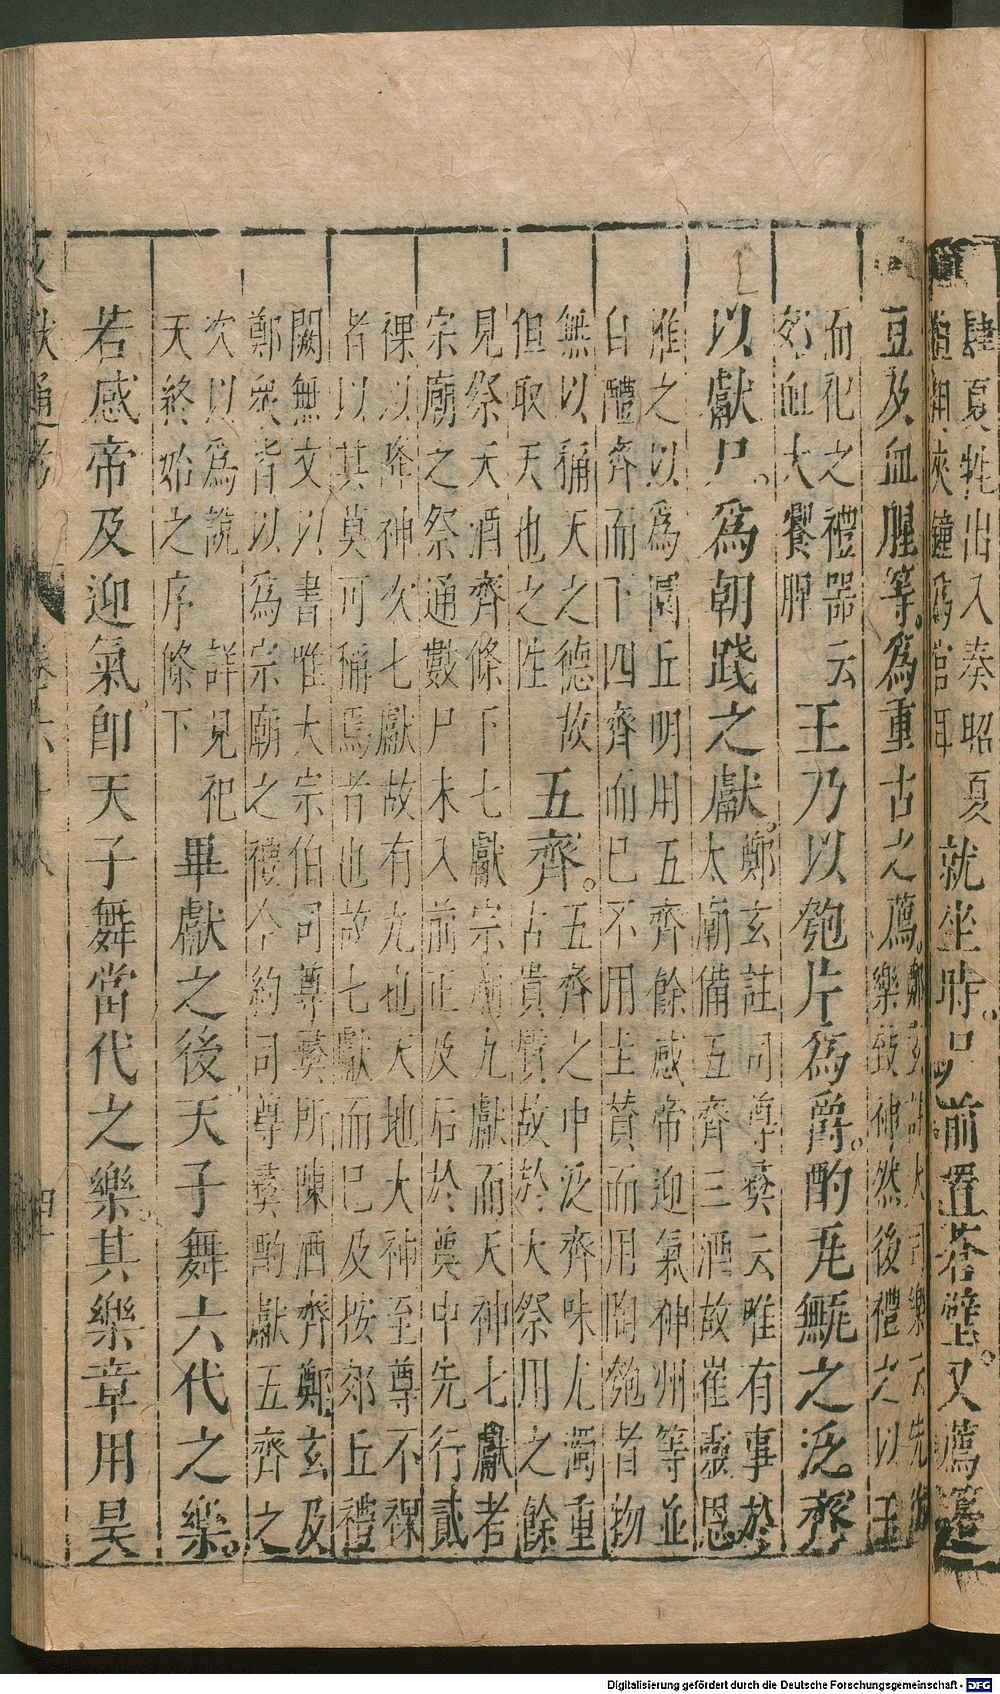 肆夏牲出入奏昭夏就坐時尸前置蒼璧又薦籩
豆及血腥等爲重古之薦鄭玄註大司樂云先
樂致神然後禮之以玉
而祀之禮器云
郊血大饗腥
王乃以匏片爲爵酌瓦甒之泛齊
以獻尸爲朝踐之獻
鄭玄註司尊彝云唯有事於
太廟備五齊三酒故崔靈恩
推之以爲圜丘明用五齊餘感帝迎氣神州等並
自醴齊而下四齊而已不用圭瓚而用陶匏者物
無以稱天之德故
但取天也之性
五齊
五齊之中泛齊味尤濁重
古貴質故於大祭用之餘
見祭天酒齊條下七獻宗廟九獻而天神七獻者
宗廟之祭通數尸未入前正及后於奠中先行貳
祼以降神次七獻故有九也天地大神至尊不祼
者以其莫可稱焉者也故七獻而已及按郊丘禮
闕無文以書唯大宗伯司尊彝所陳酒齊鄭玄及
鄭衆皆以爲宗廟之禮今約司尊彝酌獻五齊之
次以爲說詳見祀
天終始之序條下
畢獻之後天子舞六代之樂
若感帝及迎氣即天子舞當代之樂其樂章用昊
Digitalisierung gefördert durch die Deutsche Forschungsgemeinschaft - DFG